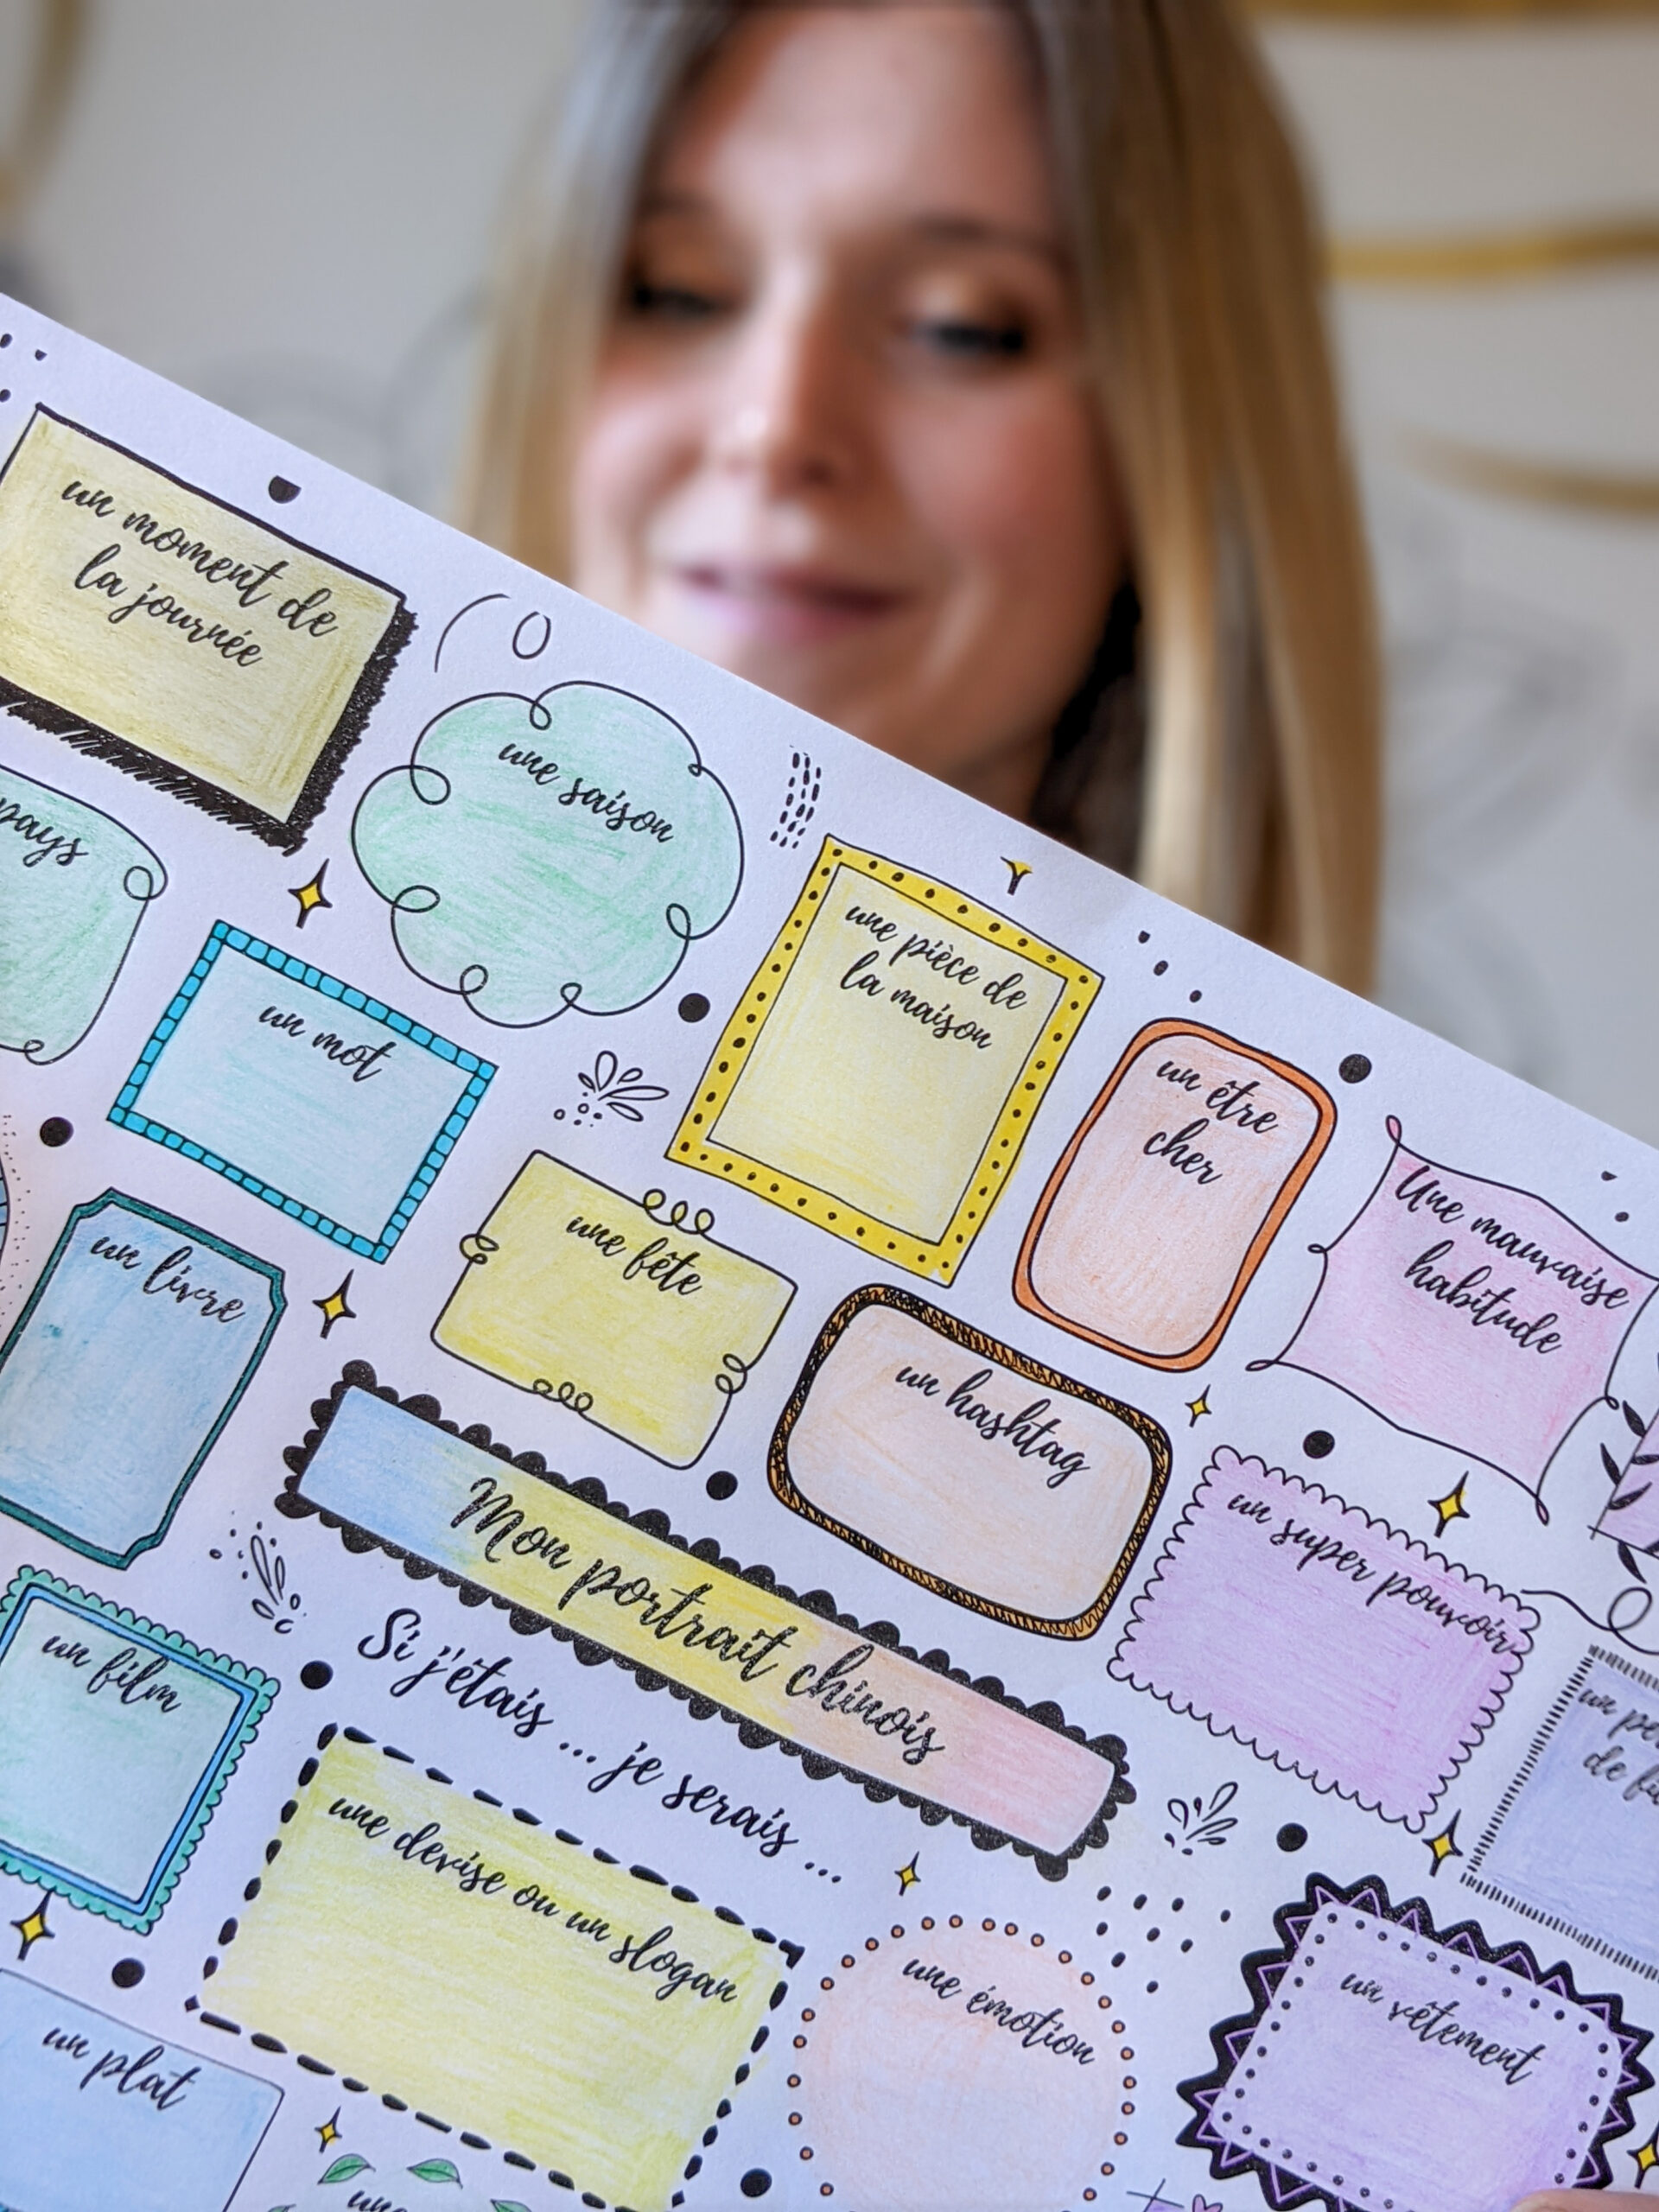 un moment de
la journée
une saison
pays
un mot
une pièce de
la maison
un être
cher
Une mauvaise
habitude
un livre
une fête
un hashtag
un super pouvoir
Mon portrait chinois
Si j'étais ... je serais ...
un film
une devise ou un slogan
de
une émotion
un vêtement
un plat
une